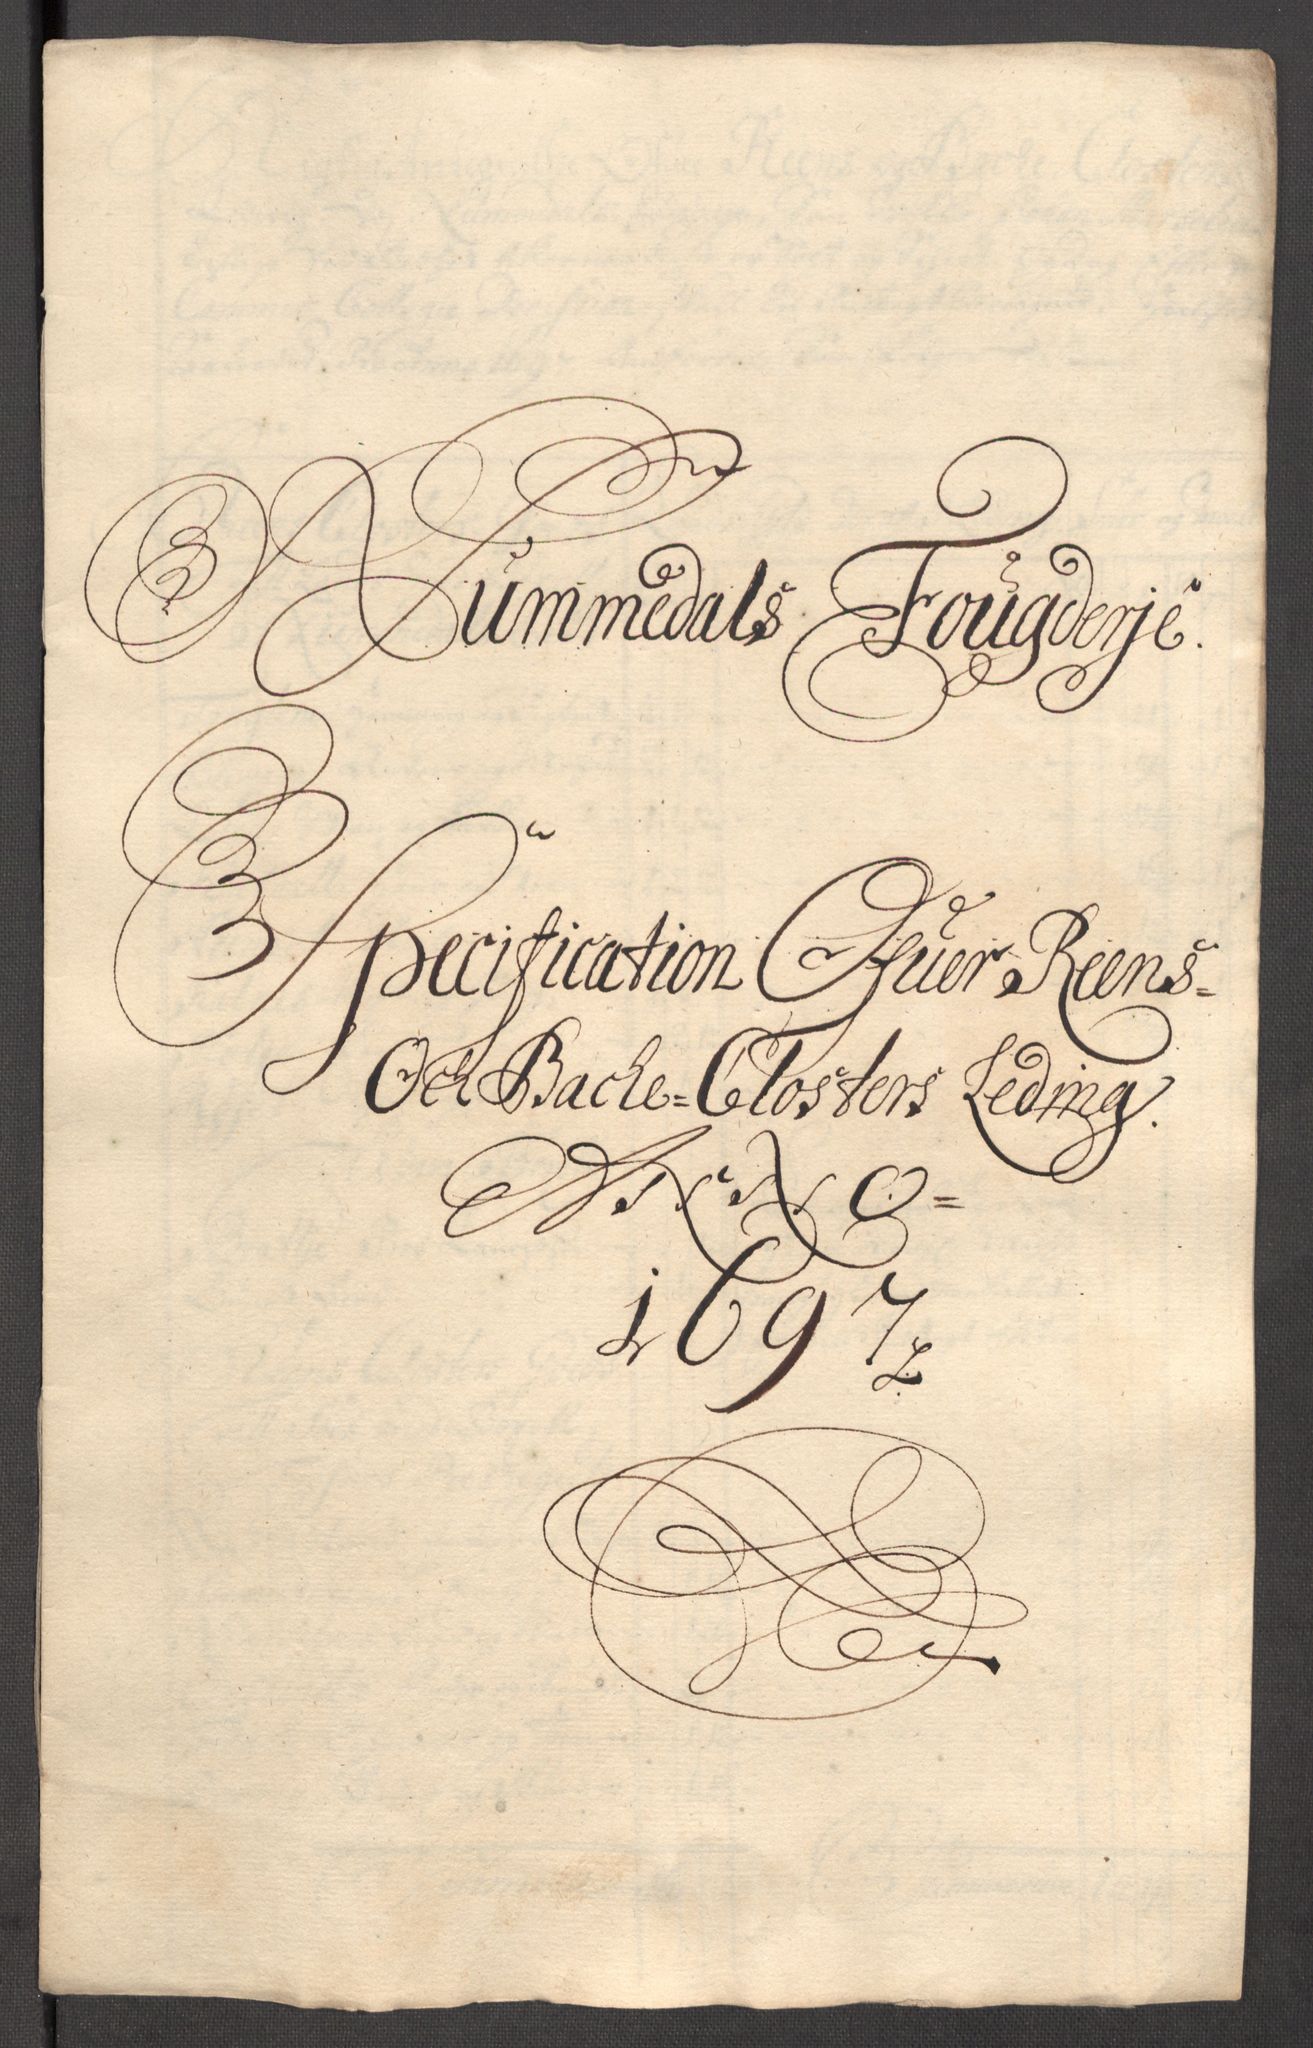 Nummedals Fougderje.
Specification Ofuer Reens-
Och Bache-Closters Leding.
ANNO=
1697